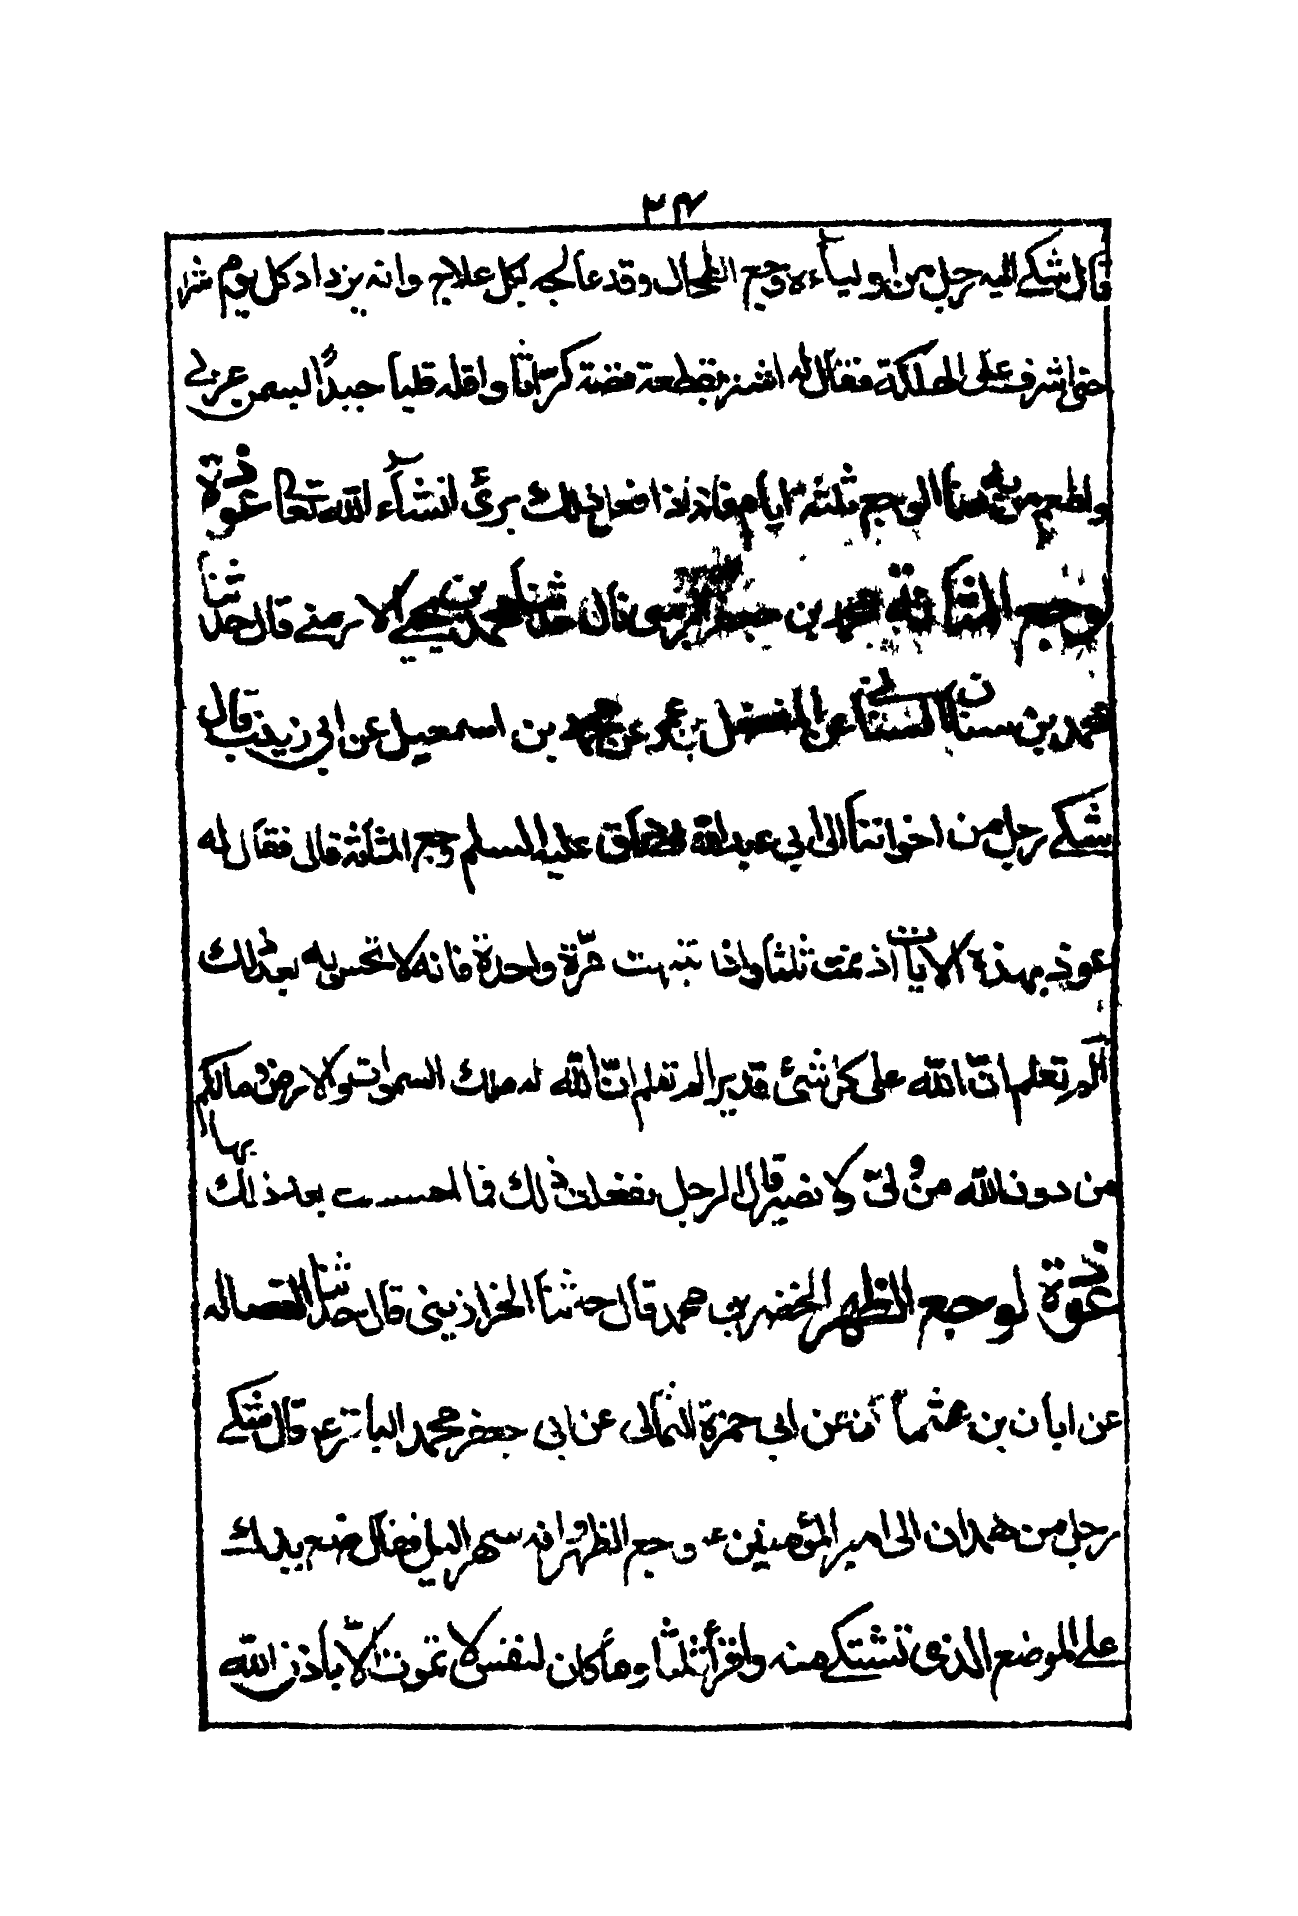 ٢٤
قال شكى اليه رجل من اولياءه وجع الطحال وقد عالجه لكل علاج وانه يزداد كل يوم شرا
حتى اشرف على الهلكة فقال له اشتر بقطعة فضة كراثا واقله قليا جيدا بسمن عربى
واطعم من به هذا الوجع ثلثة ايام فانه اذا فعل ذلك برئ انشاء الله تعا عوذة
لوجع المثانة محمد بن جعفر البرسى قال حدثنا محمد بن يحيى الارمنى قال حدثنا
محمد بن سنان السنانى عن المفضل بن عمر عن محمد بن اسمعيل عن ابى زينب قال
شكى رجل من اخواننا الى ابى عبد الله الصادق عليه السلم وجع المثانة قال فقال له
عوذه بهذه الايات اذ نمت ثلثا واذا تنبهت مرة واحدة فانه لا تحس به بعد ذلك
الم تعلم ان الله على كل شئ قدير الم تعلم ان الله له ملك السموات والارض وما لكم
من دون الله من ولى ولا نصير قال الرجل ففعلت ذلك فما احسست بها بعد ذلك
عوذة لوجع الظهر الخضر بن محمد قال حدثنا الخرازينى قال حدثنا القصاله
عن ابان بن عثمان عن ابى حمزة الثمالى عن ابى جعفر محمد الباقر ع قال شكى
رجل من همدان الى امير المؤمنين ع وجع الظهر وانه يسهر الليل فقال ضع يدك
على الموضع الذى تشتكى منه واقرأ ثلثا وما كان لنفس ان تموت الا باذن الله